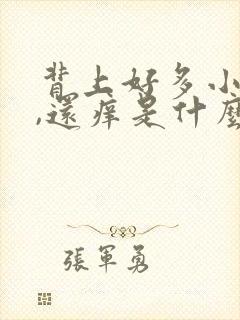 背上好多小
,還痒是什麼
張軍勇